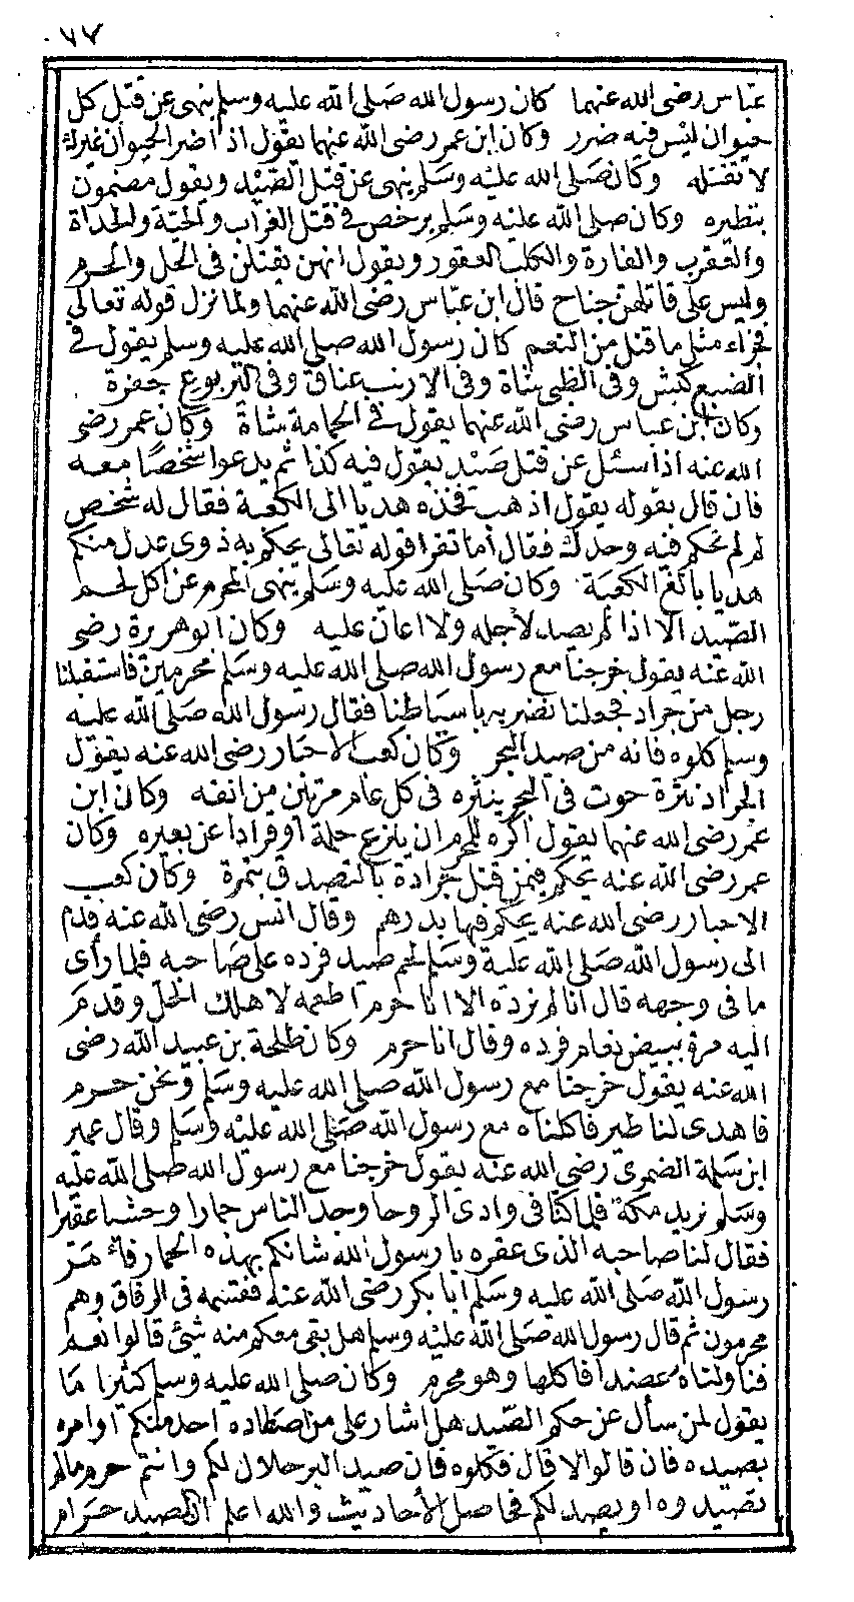 ٧٧
عباس رضى الله عنهما كان رسول الله صلى الله عليه وسلم ينهى عن قتل كل
حيوان ليس فيه ضرر وكان ابن عمر رضى الله عنهما يقول اذا اضر الحيوان غيرك
لا تقتله وكان صلى الله عليه وسلم ينهى عن قتل الصيد ويقول مضمون
بنظيره وكان صلى الله عليه وسلم يرخص فى قتل الغراب والحية والحداة
والعقرب والفارة والكلب العقور ويقول انهن يقتلن فى الحل والحرم
وليس على قاتلهن جناح قال ابن عباس رضى الله عنهما ولما نزل قوله تعالى
فجزاء مثل ما قتل من النعم كان رسول الله صلى الله عليه وسلم يقول فى
الضبع كبش وفى الظبى شاة وفى الارنب عناق وفى اليربوع جفرة
وكان ابن عباس رضى الله عنهما يقول فى الحمامة شاة وكان عمر رضى
الله عنه اذا سئل عن قتل صيد يقول فيه كذا ثم يدعوا شخصا معه
فان قال بقوله يقول اذهب فخذه هديا الى الكعبة فقال له شخص
لم لم تحكم فيه وحدك فقال أما تقرا قوله تعالى يحكم به ذوى عدل منكم
هديا بالغ الكعبة وكان صلى الله عليه وسلم ينهى المحرم عن اكل لحم
الصيد الا اذا لم يصد لأجله ولا اعان عليه وكان ابو هريرة رضى
الله عنه يقول خرجنا مع رسول الله صلى الله عليه وسلم محرمين فاستقبلنا
رجل من جراد فجعلنا نضربه باسياطنا فقال رسول الله صلى الله عليه
وسلم كلوه فانه من صيد البحر وكان كعب الاحبار رضى الله عنه يقول
الجراد نثرة حوت فى البحر ينثره فى كل عام مرتين من انفه وكان ابن
عمر رضى الله عنهما يقول اكره للمحرم ان ينزع حلمة او قرادا عن بعيره وكان
عمر رضى الله عنه يحكم فيمن قتل جرادة بالتصدق بتمرة وكان كعب
الاحبار رضى الله عنه يحكم فيها بدرهم وقال انس رضى الله عنه قدم
الى رسول الله صلى الله عليه وسلم لحم صيد فرده على صاحبه فلما رأى
ما فى وجهه قال انا لم نرده الا انا حرم اطعمه لاهلك الحل وقدم
اليه مرة ببيض نعام فرده وقال انا حرم وكان طلحة بن عبيد الله رضى
الله عنه يقول خرجنا مع رسول الله صلى الله عليه وسلم ونحن حرم
فاهدى لنا طير فاكلناه مع رسول الله صلى الله عليه وسلم وقال عمير
ابن سلمة الضمرى رضى الله عنه يقول خرجنا مع رسول الله صلى الله عليه
وسلم نريد مكة فلما كنا فى وادى الروحا وجد الناس حمارا وحشيا عقيرا
فقال لنا صاحبه الذى عقره يا رسول الله شانكم بهذه الحمار فامر
رسول الله صلى الله عليه وسلم ابا بكر رضى الله عنه فقسمه فى الرفاق وهم
محرمون ثم قال رسول الله صلى الله عليه وسلم هل بقى معكم منه شئ قالوا نعم
فناولناه عضدا فاكلها وهو محرم وكان صلى الله عليه وسلم كثيرا ما
يقول لمن سأل عن حكم الصيد هل اشار على من اصطاده احد منكم او امره
بصيده فان قالوا لا قال فكلوه فان صيد البر حلال لكم وانتم حرم ما لم
تصيدوه او يصد لكم فحاصل الأحاديث والله اعلم ان الصيد حرام